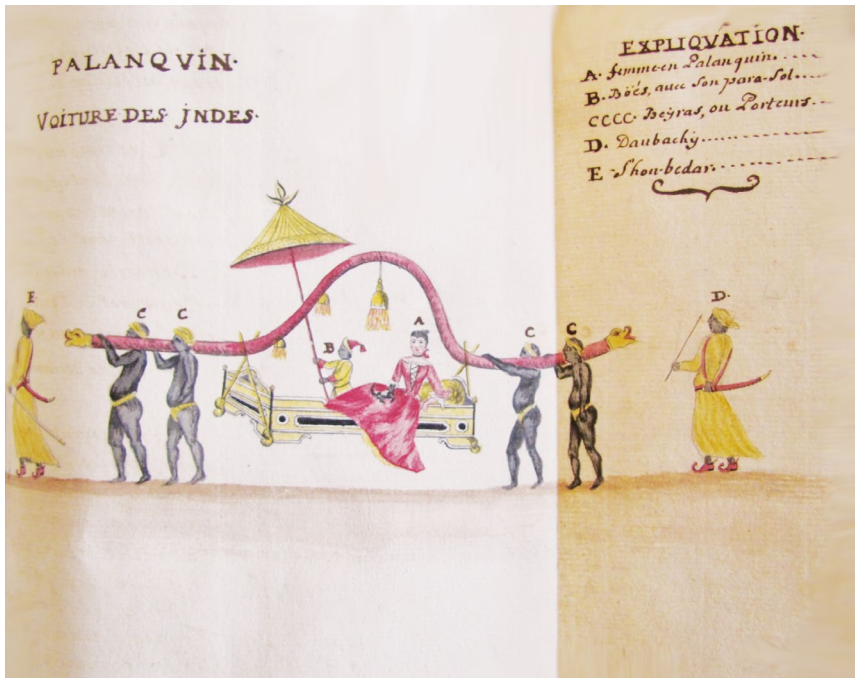 PALANQVIN.
VOITURE DES JNDES.
EXPLIQVATION.
A. femme en Palanquin.....
B. Boës, avec Son para-Sol....
CCCC. Beÿras, ou Porteurs...
D. Daubachy...............
E Shou-bedar...............
E
C C
B
A
C C
D.